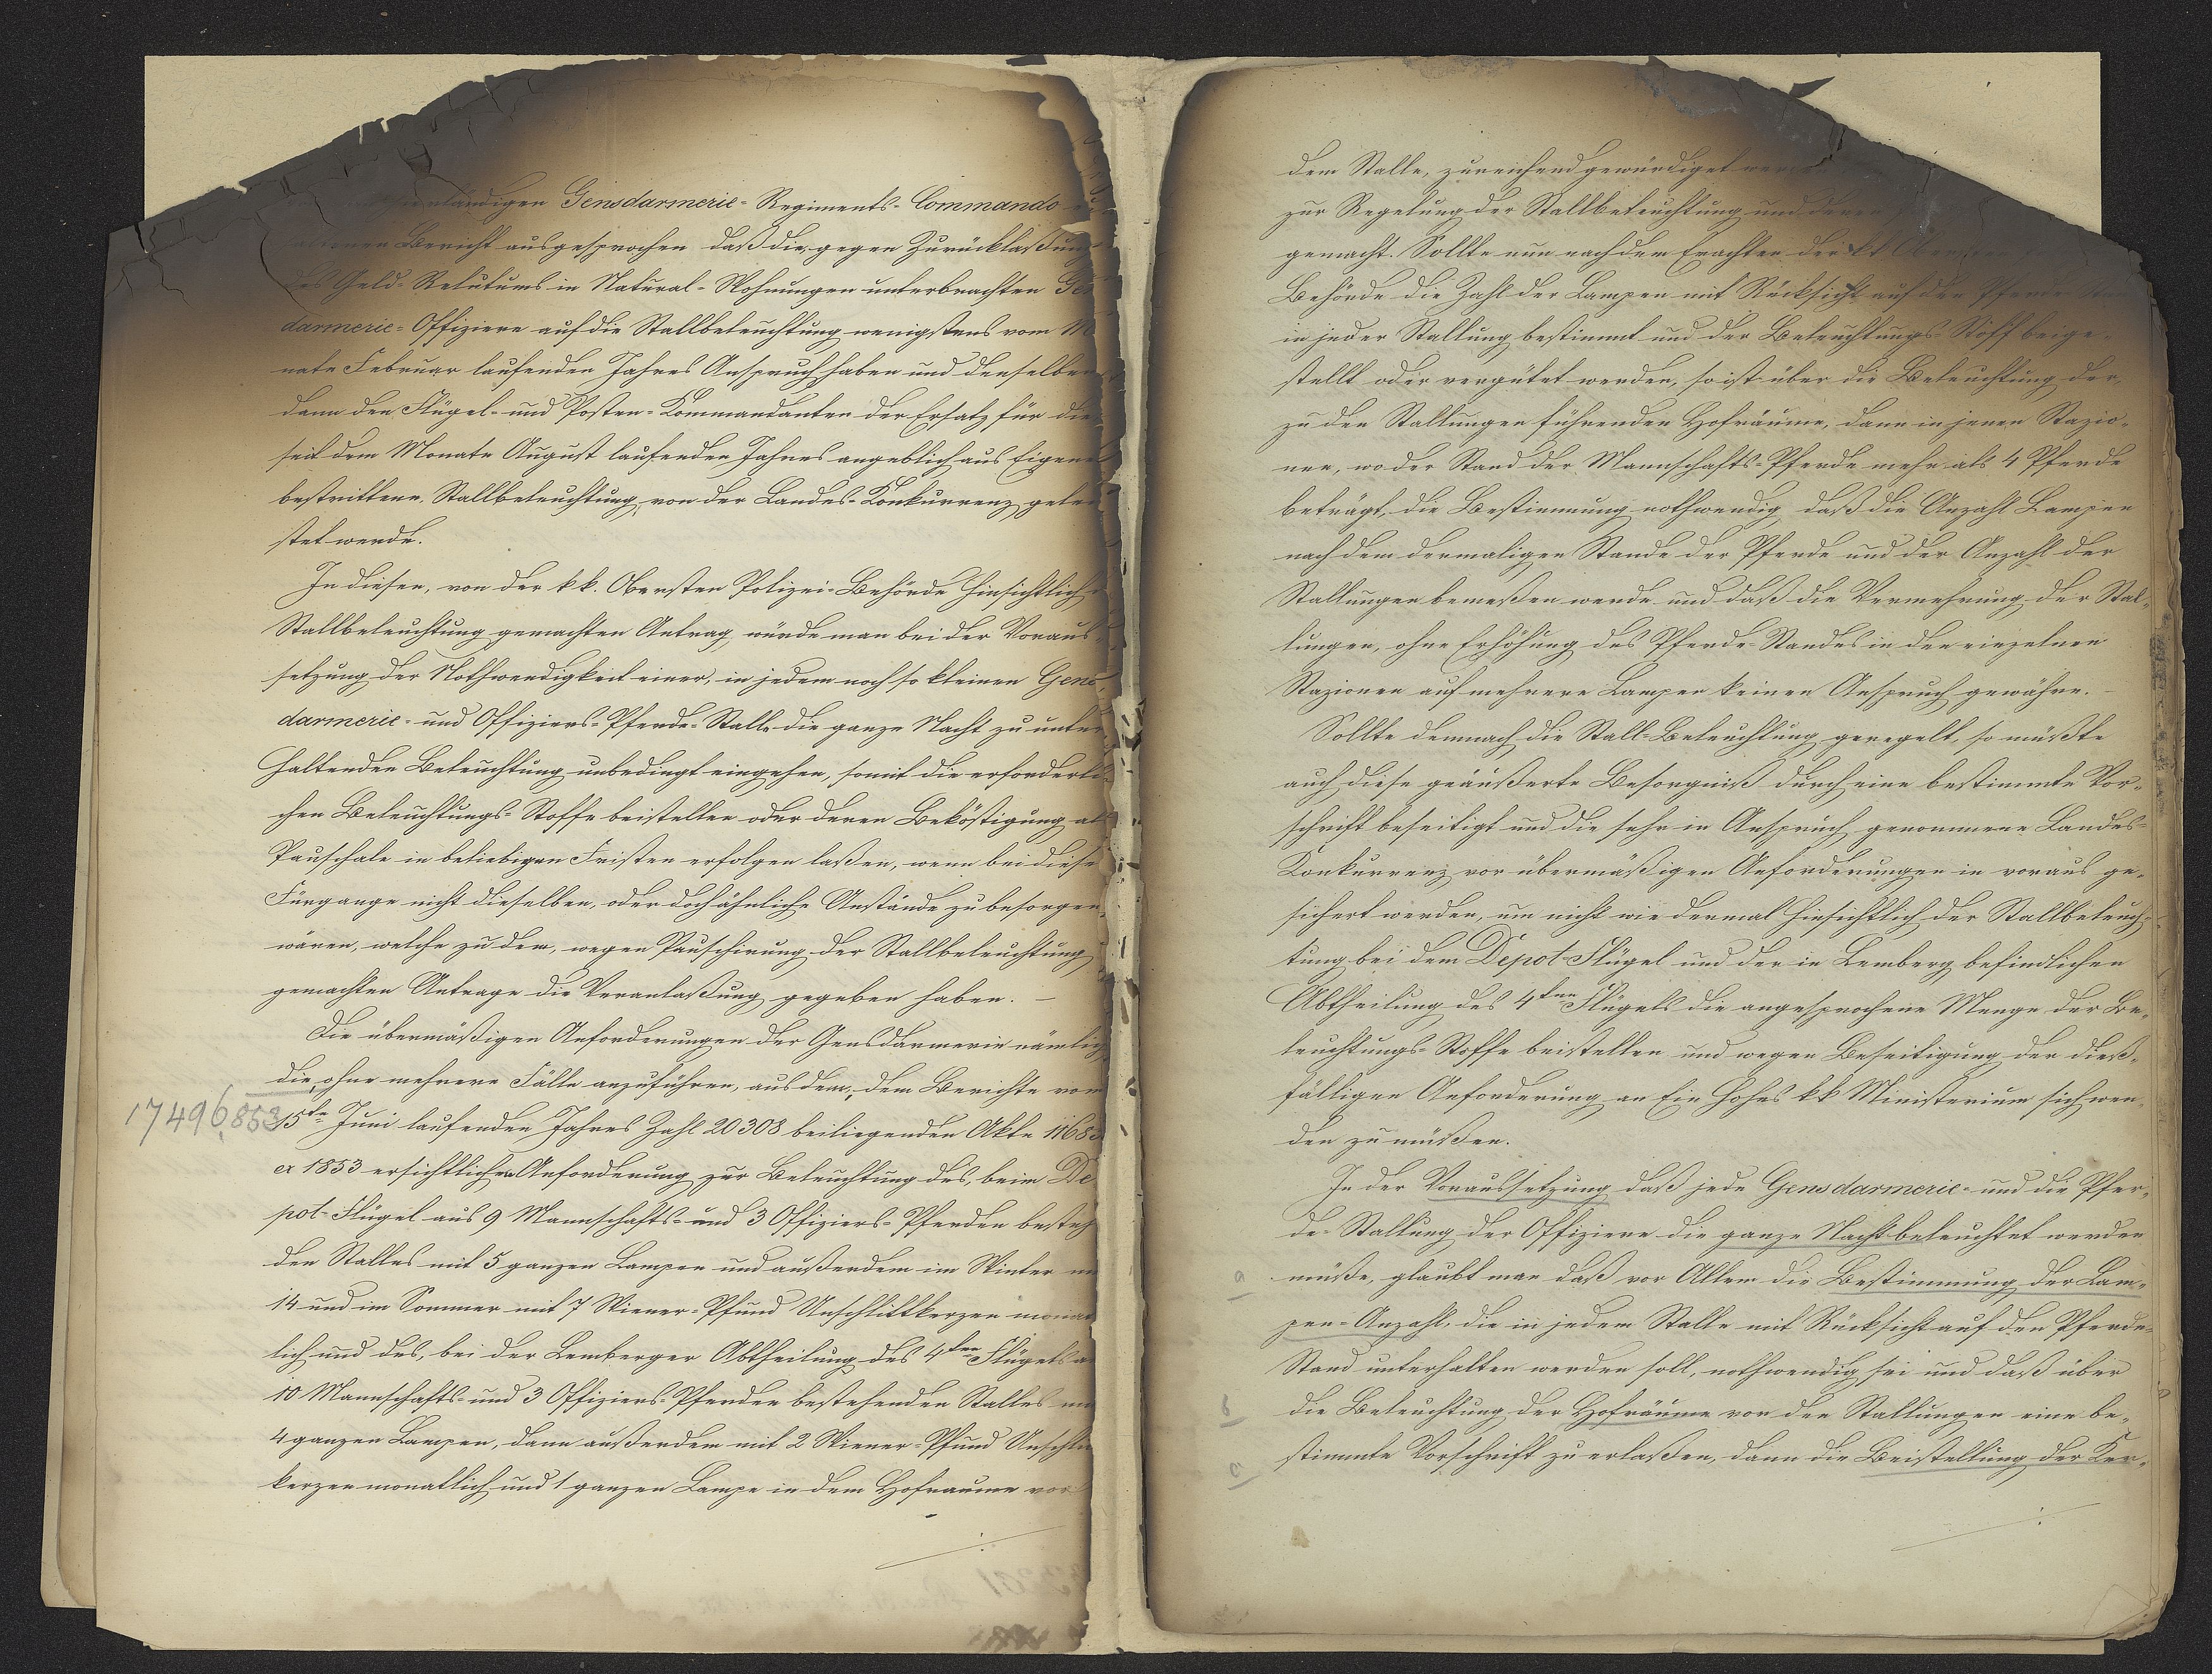 ständigen Gensdarmerie-Regiments-Commando
Bericht ausgesprochen daß die, gegen Zurücklaßung
des Geld-Relutums in Natural-Wohnungen unterbrachten Gen
darmerie-Offiziere auf die Stallbeleuchtung wenigstens vom M
nate Februar laufenden Jahres Anspruch haben und denselben
dann den Flügel- und Posten-Kommandanten der Ersatz für die
seit dem Monate August laufenden Jahres angeblich aus Eigenem
bestrittene, Stallbeleuchtung, von der Landes-Konkurrenz gelei
stet werde.
In diesen, von der k k. Obersten Polizei-Behörde hinsichtlich
Stallbeleuchtung gemachten Antrag, würde man bei der Voraus-
setzung der Nothwendigkeit einer, in jedem noch so kleinen Gens-
darmerie- und Offiziers-Pferde-Stalle die ganze Nacht zu unter
haltenden Beleuchtung unbedingt eingehen, somit die erforderli
chen Beleuchtungs-Stoffe beistellen oder deren Beköstigung als
Pauschale in beliebigen Fristen erfolgen laßen, wenn bei diese
Fürgange nicht dieselben, oder doch ähnliche Anstände zu besorgen
wären, welche zu dem, wegen Pauschirung der Stallbeleuchtung
gemachten Antrage die Veranlaßung gegeben haben. –
Die übermäßigen Anforderungen der Gensdarmerie nämlich
die, ohne mehrere Fälle anzuführen, aus dem, dem Berichte vom
17496 853 15te Juni laufenden Jahres Zahl 20308 beiliegenden Akte 1168
ex 1853 ersichtlichen Anforderung zur Beleuchtung des, beim De
pot-Flügel aus 9 Mannschafts- und 3 Offiziers-Pferden besteh
den Stalles mit 5 ganzen Lampen und außerdem im Winter m
14 und im Sommer mit 7 Wiener-Pfund Unschlittkerzen monat
lich und des, bei der Lemberger Abtheilung des 4ten Flügels a
10 Mannschafts- und 3 Offiziers-Pferden bestehenden Stalles m
4 ganzen Lampen, dann außerdem mit 2 Wiener-Pfund Unschli
kerzen monatlich und 1 ganzen Lampe in dem Hofraume vor
dem Stalle, zureichend gewürdiget wer
zur Regelung der Stallbeleuchtung und deren
gemacht. Sollte nun nach dem Erachten der kk Oberst
Behörde die Zahl der Lampen mit Rücksicht auf den Pferde
in jeder Stallung bestimmt und der Beleuchtungs-Stoff beige-
stellt oder vergütet werden, so ist über die Beleuchtung der,
zu den Stallungen führenden Hofräume, dann in jenen Stazio-
nen, wo der Stand der Mannschafts-Pferde mehr als 4 Pferde
beträgt, die Bestimmung nothwendig, daß die Anzahl Lampen
nach dem dermaligen Stande der Pferde und der Anzahl der
Stallungen bemeßen werde und daß die Vermehrung der Stal-
lungen, ohne Erhöhung des Pferde-Standes in den einzelnen
Stazionen auf mehrere Lampen keinen Anspruch gewähre. –
Sollte demnach die Stall-Beleuchtung geregelt, so müßte
auch diese geäußerte Besorgniß durch eine bestimmte Vor-
schrift beseitigt und die sehr in Anspruch genommene Landes-
Konkurrenz vor übermäßigen Anforderungen in voraus ge-
sichert werden, um nicht wie dermal hinsichtlich der Stallbeleuch-
tung bei dem Depot-Flügel und der in Lemberg befindlichen
Abtheilung des 4ten Flügels die angesprochene Menge der Be-
leuchtungs-Stoffe beistellen und wegen Beseitigung der dieß-
fälligen Anforderung an Ein hohes kk Ministerium sich wen-
den zu müßen.
In der Voraussetzung daß jede Gensdarmerie- und die Pfer-
de-Stallung der Offiziere die ganze Nacht beleuchtet werden
a müße, glaubt man daß vor Allem die Bestimmung der Lam-
pen-Anzahl, die in jedem Stalle mit Rücksicht auf den Pferde-
Stand unterhalten werden soll, nothwendig sei und daß über
b die Beleuchtung der Hofräume von den Stallungen eine be-
c stimmte Vorschrift zu erlaßen, dann die Beistellung der Ker-